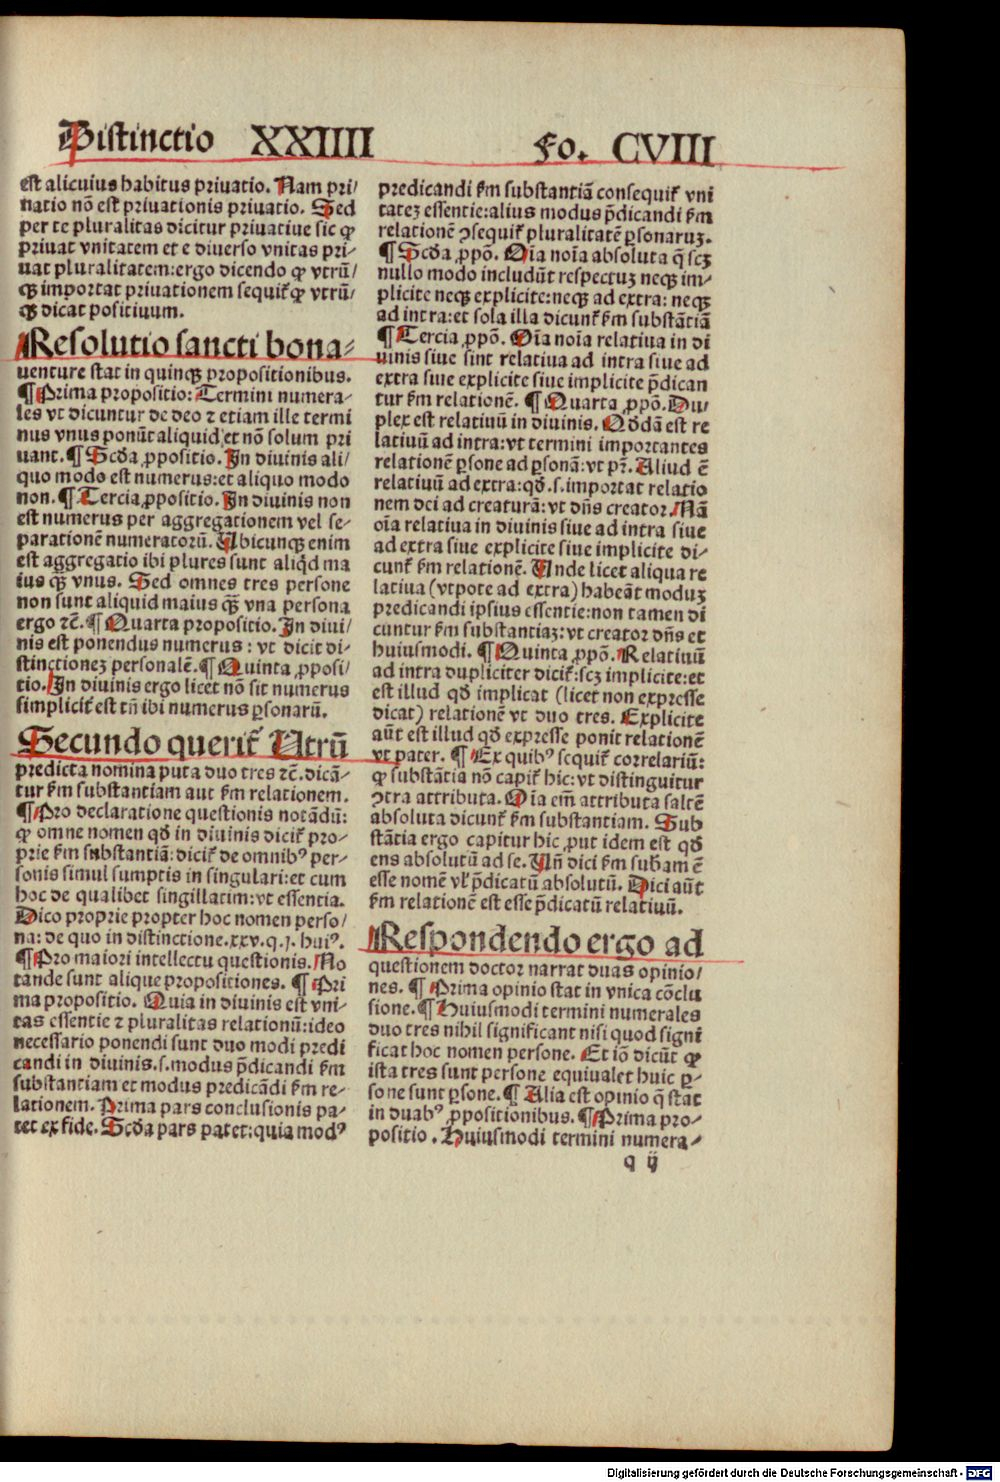 Distinctio XXIIII Fo. CVIII
est alicuius habitus priuatio. Nam pri/
uatio nō est priuationis priuatio. Sed
per te pluralitas dicitur priuatiue sic ꝙ
priuat vnitatem et e diuerso vnitas pri/
uat pluralitatem: ergo dicendo ꝙ vtrū/
qꝫ importat priuationem sequit̄ ꝙ vtrū/
qꝫ dicat positiuum.
Resolutio sancti bona-
uenture stat in quinqꝫ propositionibus.
¶ Prima propositio: Termini numera-
les vt dicuntur de deo ⁊ etiam ille termi
nus vnus ponūt aliquid et nō solum pri
uant. ¶ Scd̄a ꝓpositio. In diuinis ali/
quo modo est numerus: et aliquo modo
non. ¶ Tercia ꝓpositio. In diuinis non
est numerus per aggregationem vel se-
parationem numeratorū. Ubicunqꝫ enim
est aggregatio ibi plures sunt aliqd̄ ma
ius qꝫ̄ vnus. Sed omnes tres persone
non sunt aliquid maius qꝫ̄ vna persona
ergo ⁊c̄. ¶ Quarta propositio. In diui/
nis est ponendus numerus : vt dicit di-
stinctioneꝫ personalē. ¶ Quinta ꝓposi/
tio. In diuinis ergo licet nō sit numerus
simplicit̄ est tn̄ ibi numerus ꝑsonarū.
Secundo querit̄ Utrū
predicta nomina puta duo tres ⁊c̄. dicā-
tur ẜm substantiam aut ẜm relationem.
¶ Pro declaratione questionis notādū:
ꝙ omne nomen qd̄ in diuinis dicit̄ pro-
prie ẜm substantiā: dicit̄ de omnibꝰ per-
sonis simul sumptis in singulari: et cum
hoc de qualibet singillatim: vt essentia.
Dico proprie propter hoc nomen perso/
na: de quo in distinctione. xxv. q. j. huiꝰ.
¶ Pro maiori intellectu questionis. No
tande sunt alique propositiones. ¶ Pri
ma propositio. Quia in diuinis est vni-
tas essentie ⁊ pluralitas relationū: ideo
necessario ponendi sunt duo modi predi
candi in diuinis. s. modus p̄dicandi ẜm
substantiam et modus predicādi ẜm re-
lationem. Prima pars conclusionis pa-
tet ex fide. Scd̄a pars patet: quia modꝰ
predicandi ẜm substantiā consequit̄ vni
tateꝫ essentie: alius modus p̄dicandi ẜm
relationē ꝯsequit̄ pluralitatē ꝑsonaruꝫ.
¶ Scd̄a ꝓpō. Oīa noīa absoluta q̄ scꝫ
nullo modo includūt respectuꝫ neqꝫ im-
plicite neqꝫ explicite: neqꝫ ad extra: neqꝫ
ad intra: et sola illa dicunt̄ ẜm substātiā
¶ Tercia ꝓpō. Oīa noīa relatiua in di
uinis siue sint relatiua ad intra siue ad
extra siue explicite siue implicite p̄dican
tur ẜm relationē. ¶ Quarta ꝓpō. Du/
plex est relatiuū in diuinis. Qd̄dā est re
latiuū ad intra: vt termini importantes
relationē ꝑsone ad ꝑsonā: vt pr̄. Aliud ē
relatiuū ad extra: qd̄. s. importat relatio
nem dei ad creaturā: vt dn̄s creator. Nā
oīa relatiua in diuinis siue ad intra siue
ad extra siue explicite siue implicite di-
cunt̄ ẜm relationē. Unde licet aliqua re
latiua (vtpote ad extra) habeāt moduꝫ
predicandi ipsius essentie: non tamen di
cuntur ẜm substantiaꝫ: vt creator dn̄s et
huiusmodi. ¶ Quinta ꝓpō. Relatiuū
ad intra dupliciter dicit̄: scꝫ implicite: et
est illud qd̄ implicat (licet non expresse
dicat) relationē vt duo tres. Explicite
aūt est illud qd̄ expresse ponit relationē
vt pater. ¶ Ex quibꝰ sequit̄ correlariū:
ꝙ substātia nō capit̄ hic: vt distinguitur
ꝯtra attributa. Oīa em̄ attributa saltē
absoluta dicunt̄ ẜm substantiam. Sub
stātia ergo capitur hic ꝓut idem est qd̄
ens absolutū ad se. Un̄ dici ẜm subām ē
esse nomē vl̄ p̄dicatū absolutū. Dici aūt
ẜm relationē est esse p̄dicatū relatiuū.
Respondendo ergo ad
questionem doctor narrat duas opinio/
nes. ¶ Prima opinio stat in vnica cōclu
sione. ¶ Huiusmodi termini numerales
duo tres nihil significant nisi quod signi
ficat hoc nomen persone. Et iō dicūt ꝙ
ista tres sunt persone equiualet huic ꝑ-
sone sunt ꝑsone. ¶ Alia est opinio q̄ stat
in duabꝰ ꝓpositionibus. ¶ Prima pro-
positio. Huiusmodi termini numera-
q ij
Digitalisierung gefördert durch die Deutsche Forschungsgemeinschaft - DFG